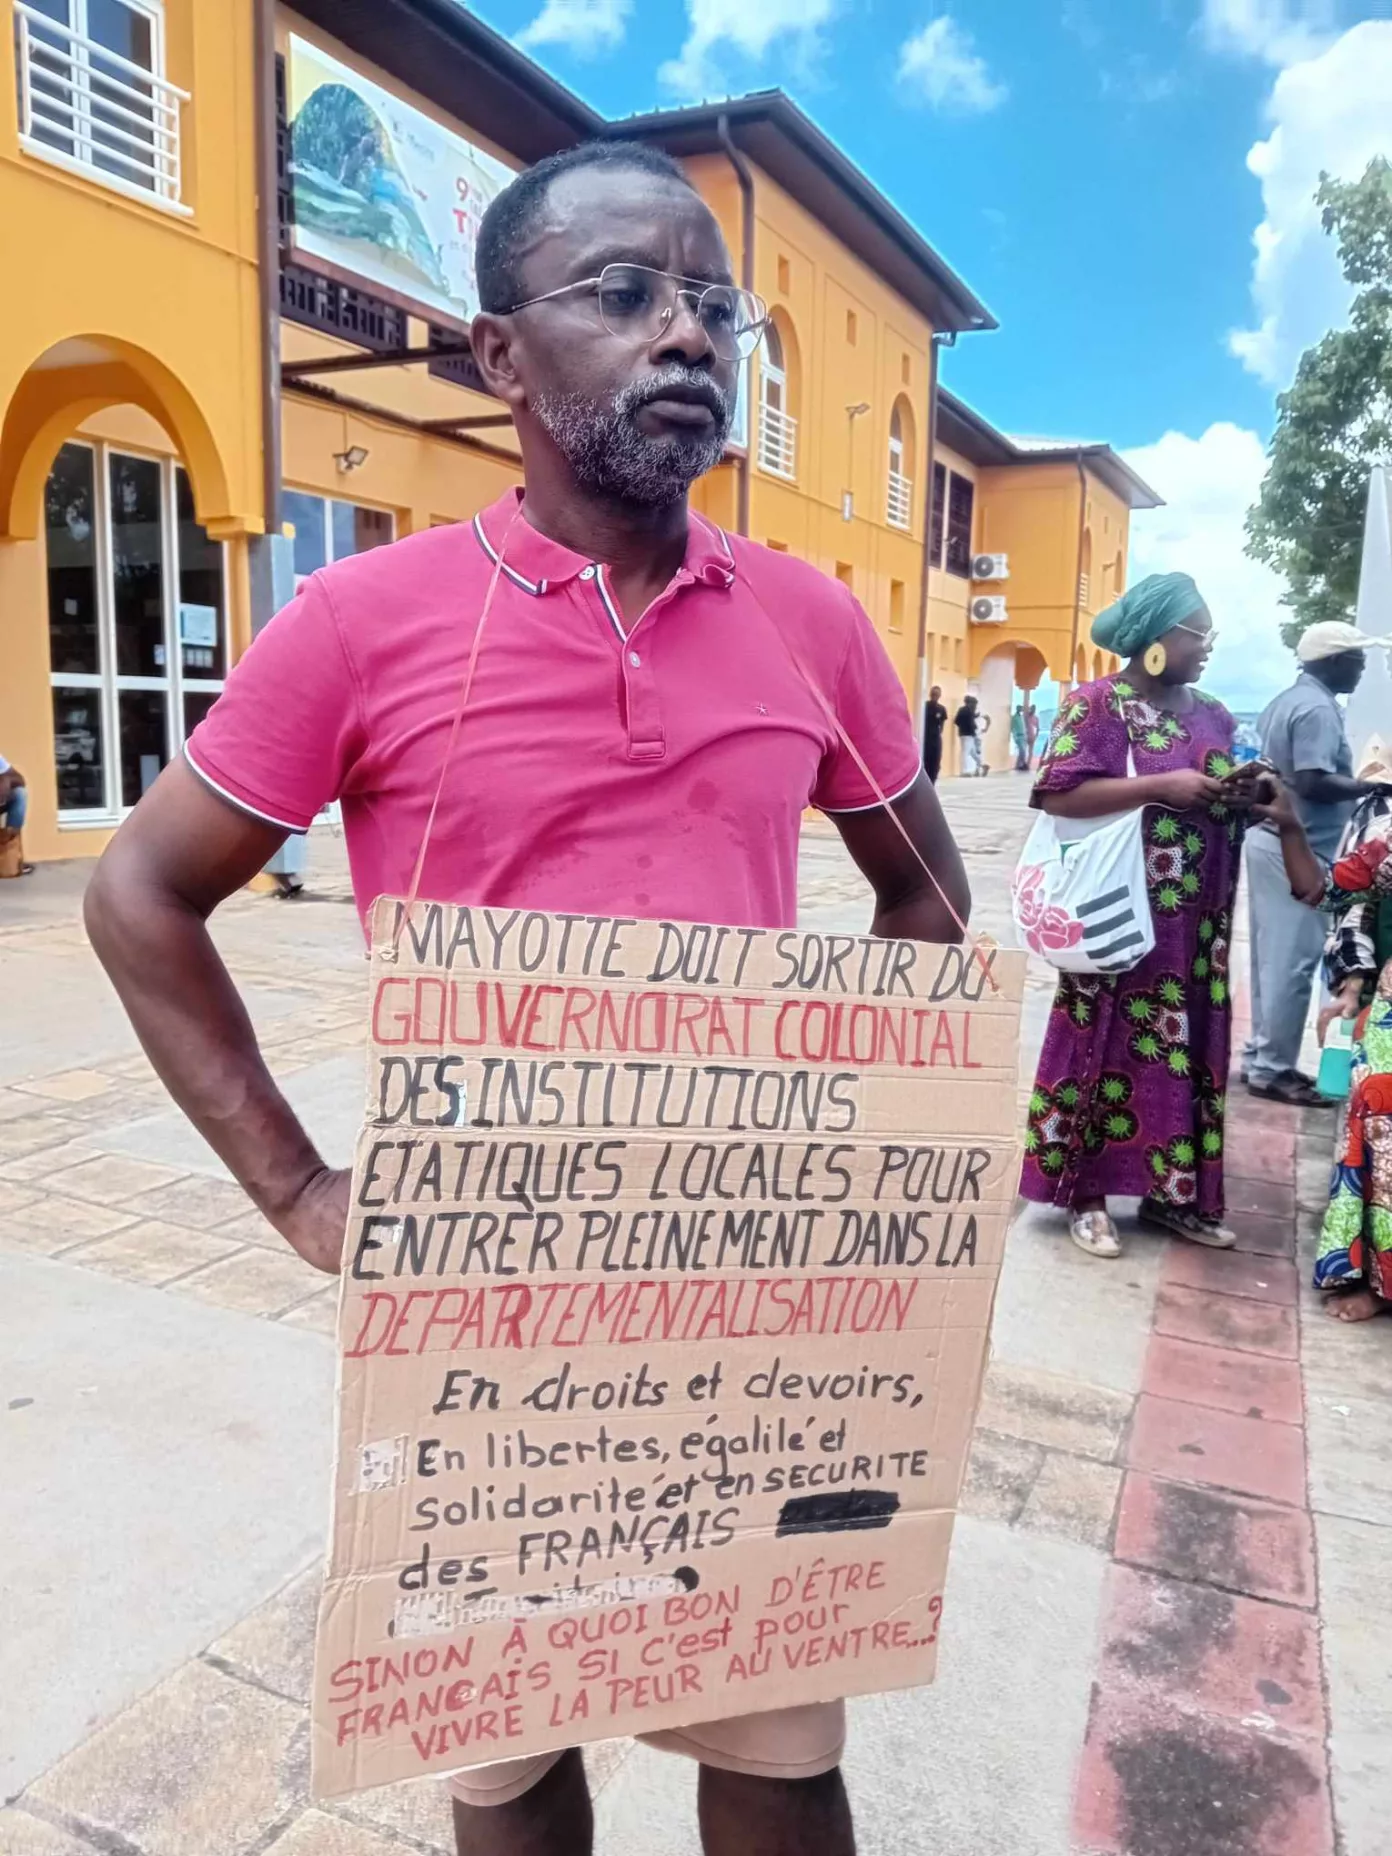 MAYOTTE DOIT SORTIR DU
GOUVERNORAT COLONIAL
DES INSTITUTIONS
ETATIQUES LOCALES POUR
ENTRER PLEINEMENT DANS LA
DEPARTEMENTALISATION
En droits et devoirs,
En libertes, égalité et
solidarité et en SECURITE
des FRANÇAIS
SINON À QUOI BON D'ÊTRE
FRANCAIS SI C'est pour
VIVRE LA PEUR AU VENTRE...?
9